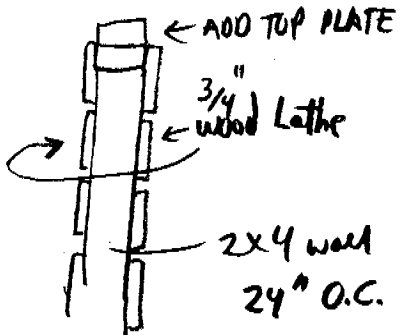 ADD TOP PLATE
3/4"
wood Lathe
2x4 wall
24" O.C.